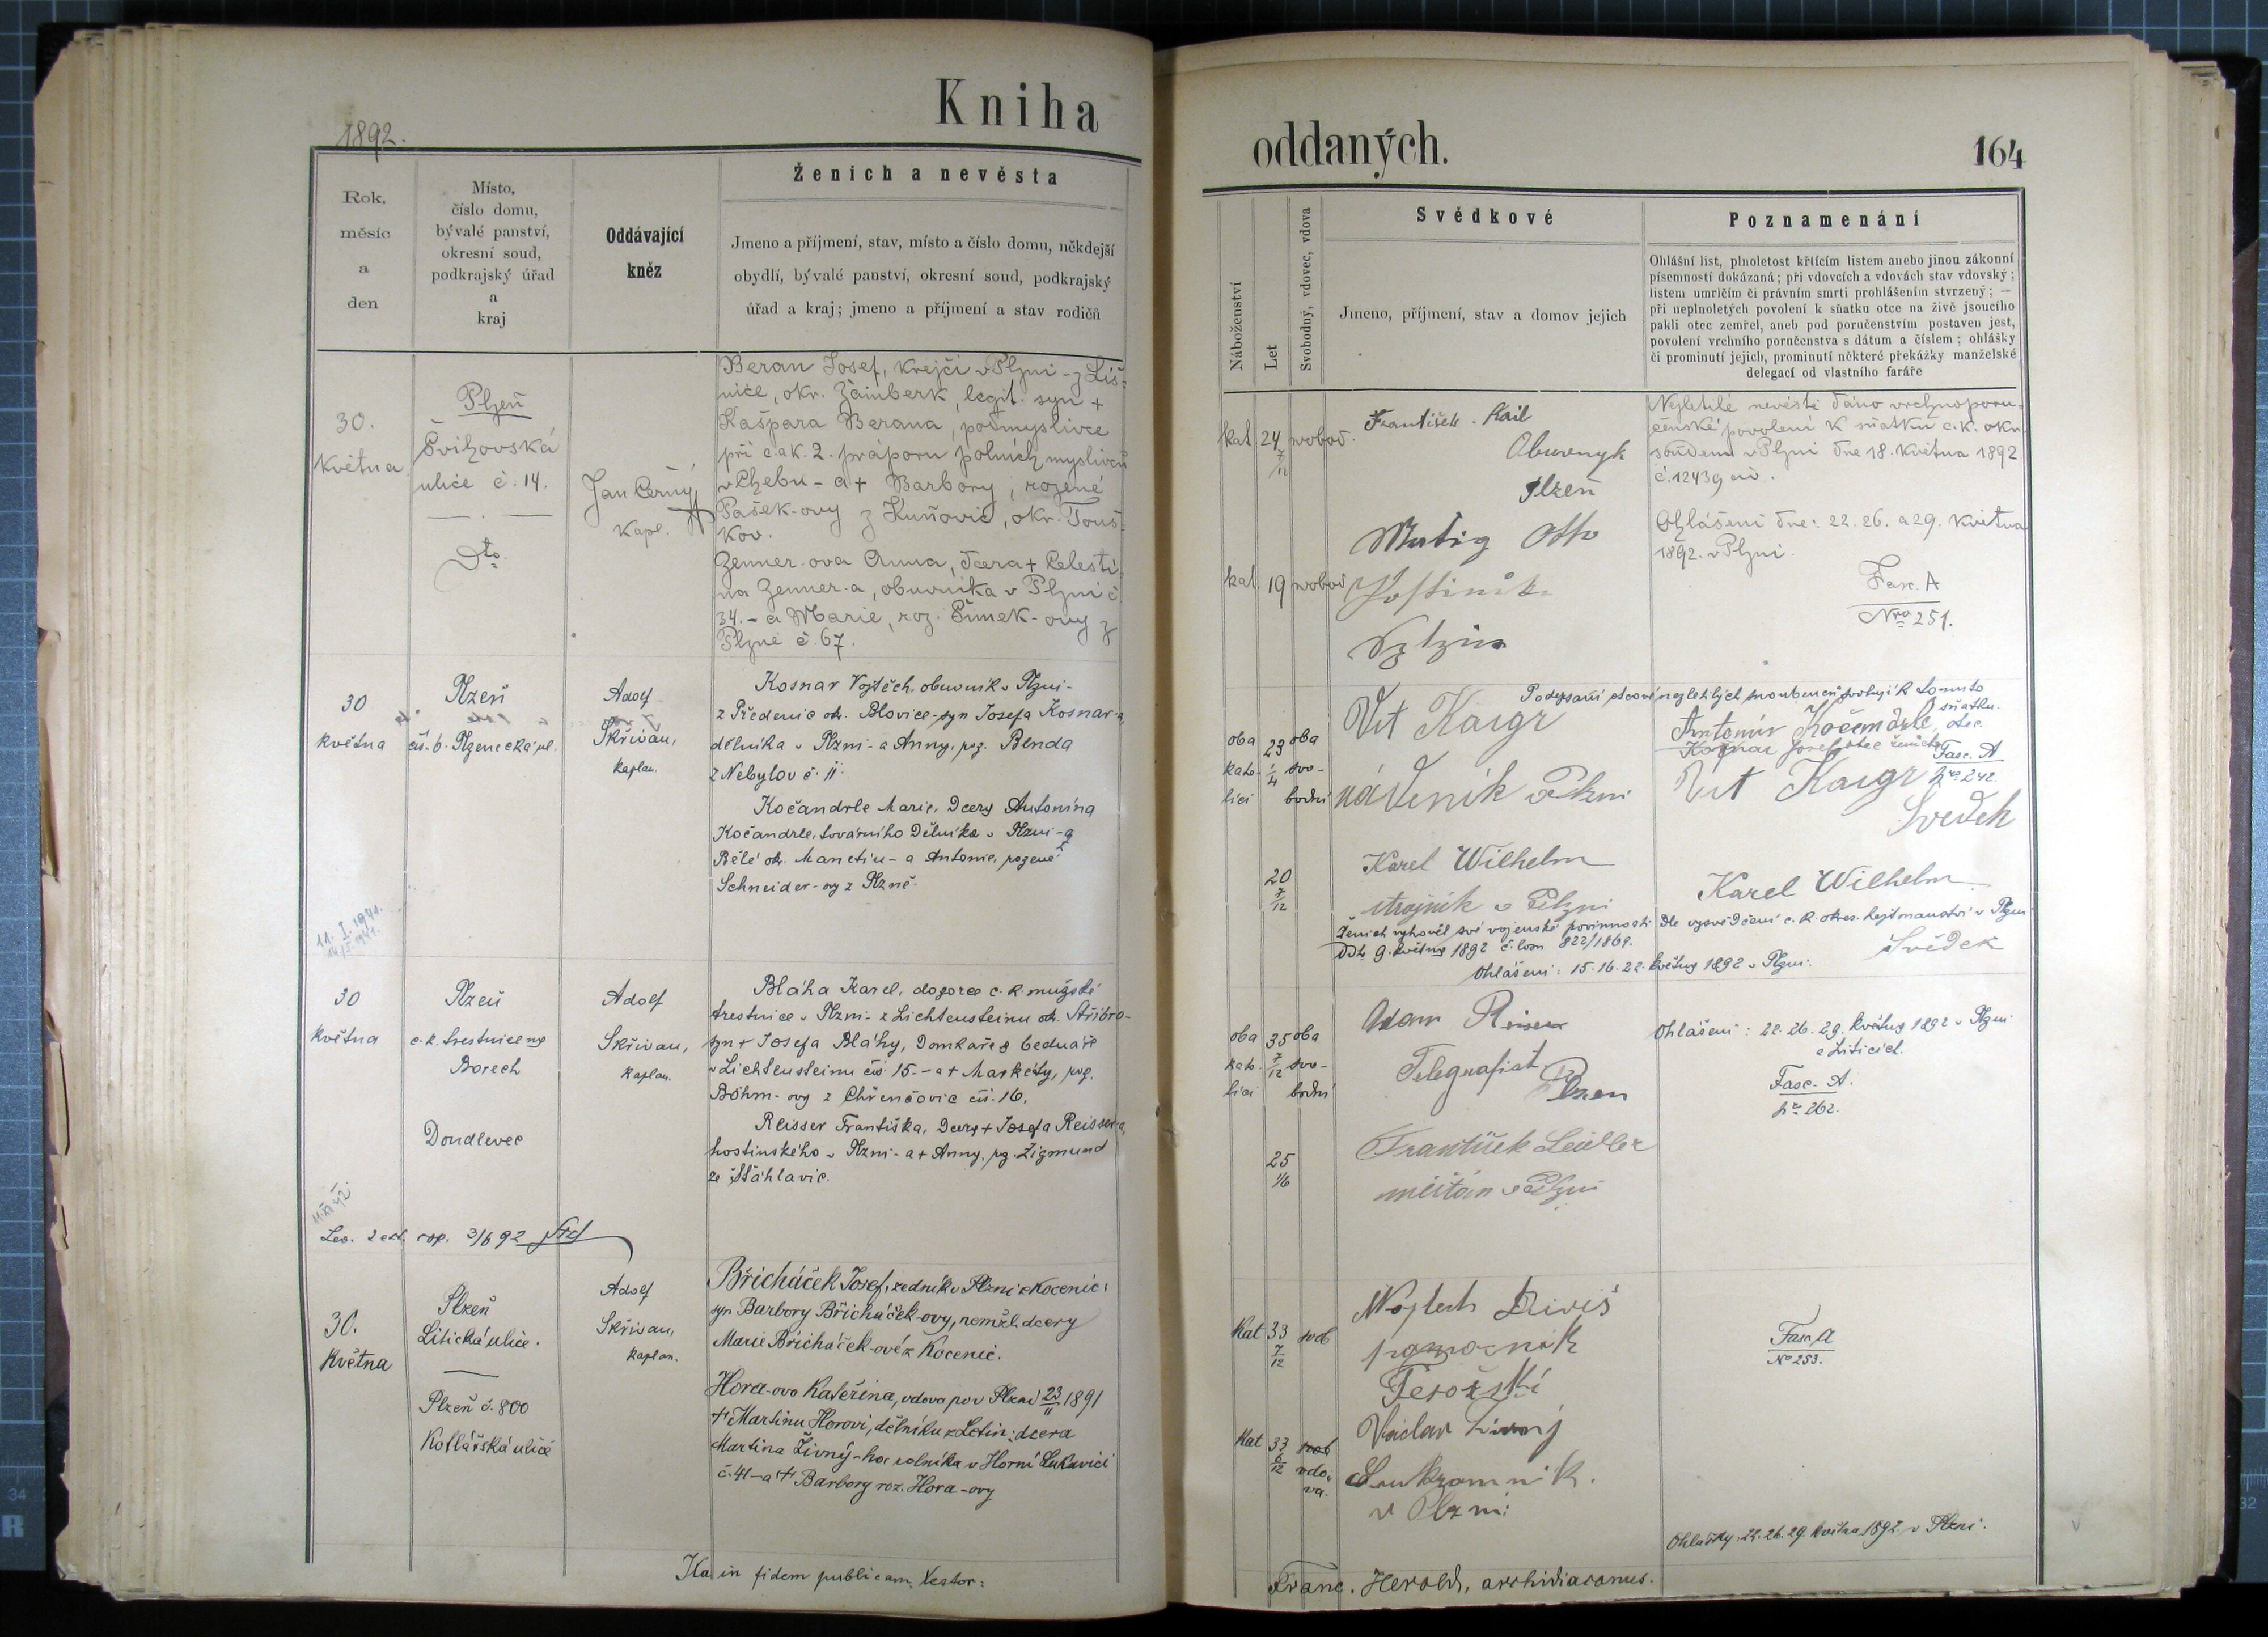 1892.
Kniha
Rok,
měsíc
a
den
Místo,
číslo domu,
bývalé panství,
okresní soud,
podkrajský úřad
a
kraj
Oddávající
kněz
Ženich a nevěsta
Jmeno a příjmení, stav, místo a číslo domu, někdejší
obydlí, bývalé panství, okresní soud, podkrajský
úřad a kraj; jmeno a příjmení a stav rodičů
30.
května
Plzeň
Švihovská
ulice č. 14.
Dto
Jan Černý
kapl.
Beran Josef, krejčí v Plzni - z Liš-
nice, okr. Žamberk, legit. syn +
Kašpara Berana, podmyslivce
při c. a k. 2. práporu polních myslivců
v Chebu - a + Barbory, rozené
Pašek-ovy z Kuňovic, okr. Touš-
kov.
Zenner-ova Anna, dcera + Celesti-
na Zenner-a, obuvníka v Plzni č.
34. - a Marie, roz. Šimek-ovy z
Plzně č. 67.
30
května
Plzeň
čís. 6. Plzenecká ul.
Adolf
Skřivan,
kaplan.
Kosnar Vojtěch, obuvník v Plzni -
z Předenic ok. Blovice - syn Josefa Kosnar-a,
dělníka v Plzni - a Anny, roz. Benda
z Nebylov č. 11.
Kočandrle Marie, dcery Antonína
Kočandrle, továrního dělníka v Plzni - z
Bělé ok. Manetín - a Antonie, rozené
Schneider-ovy z Plzně.
11. I. 1941.
14. I. 1941.
30
května
Plzeň
c. k. trestnice na
Borech
Doudlevec
Adolf
Skřivan,
kaplan.
Bláha Karel, dozorce c. k. mužské
trestnice v Plzni - z Lichtensteinu ok. Stříbro -
syn + Josefa Bláhy, domkaře a bednáře
v Lichtensteinu čís. 15. - a + Markéty, roz.
Böhm-ovy z Chřenčovic čís. 16.
Reisser Františka, dcery + Josefa Reisser-a,
hostinského v Plzni - a + Anny, roz. Zigmund
ze Šťáhlavic.
Les. 2 ext. cop. 3/6 92
30.
Května
Plzeň
Litická ulice.
Plzeň č. 800
Kollářská ulice
Adolf
Skřivan,
kaplan.
Břicháček Josef, zedník v Plzni z Kocenic:
syn Barbory Břicháček-ovy, nemžl. dcery
Marie Břicháček-ové z Kocenic.
Hora-ova Kateřina, vdova po v Plzni 23/II 1891
+ Martinu Horovi, dělníku z Letin: dcera
Martina Živný-ho rolníka v Horní Lukavici
č. 41 - a + Barbory roz. Hora-ovy
Ita in fidem publicam, testor:
oddaných.
164
Náboženství
Let
Svobodný, vdovec, vdova
Svědkové
Jmeno, příjmení, stav a domov jejich
Poznamenání
Ohlášní list, plnoletost křticím listem anebo jinou zákonní
písemností dokázaná; při vdovcích a vdovách stav vdovský;
listem umrlčím či právním smrti prohlášením stvrzený; —
při neplnoletých povolení k sňatku otce na živě jsoucího
pakli otec zemřel, aneb pod poručenstvím postaven jest,
povolení vrchního poručenstva s dátum a číslem; ohlášky
či prominutí jejich, prominutí některé překážky manželské
delegací od vlastního faráře
kat. 24 7/12 svobod.
František Kail
Obuvnyk
Plzeň
Nezletilé nevěstě dáno vrchnoporu-
čenské povolení k sňatku c. k. okr.
soudem v Plzni dne 18. května 1892
č. 12439 civ.
Otto
kat. 19 svobod.
Ohlášení dne: 22. 26. a 29. května
1892. v Plzni.
Fasc. A
Nro 251.
oba
kato-
líci
23 1/4
oba
svo-
bodní
Vít Kaigr
v Plzni
Podepsaní otcové nezletilých snoubenců svolují k tomuto
sňatku.
Antonín Kočandrle, otec
Kosnar Josef otec ženicha
Fasc. A
Nro 242.
Vít Kaigr
Svedek
20 7/12
Karel Wilhelm
strojník v Plzni
Karel Wilhelm
Svědek
Ženich vyhověl své vojenské povinnosti dle vysvědčení c. k. okres. hejtmanství v Plzni
ddto 9. května 1892 č. 822/1869.
Ohlášení: 15. 16. 22. května 1892 v Plzni.
oba
kato-
líci
35 7/12
oba
svo-
bodní
Adam Reiser
Telegrafist
Plzen
Ohlášení: 22. 26. 29. května 1892 v Plzni
a Liticích.
Fasc. A.
Nr 262.
25 1/6
František Seidler
měšťan v Plzni
Kat 33 7/12 svob
Wojtech Diviš
Fasc. A
No 253.
Kat 33 6/12 svob vdo-
va.
Václav Živný
Soukromník.
v Plzni
Ohlášky: 22. 26. 29. května 1892. v Plzni.
Franc. Herold, archidiaconus.